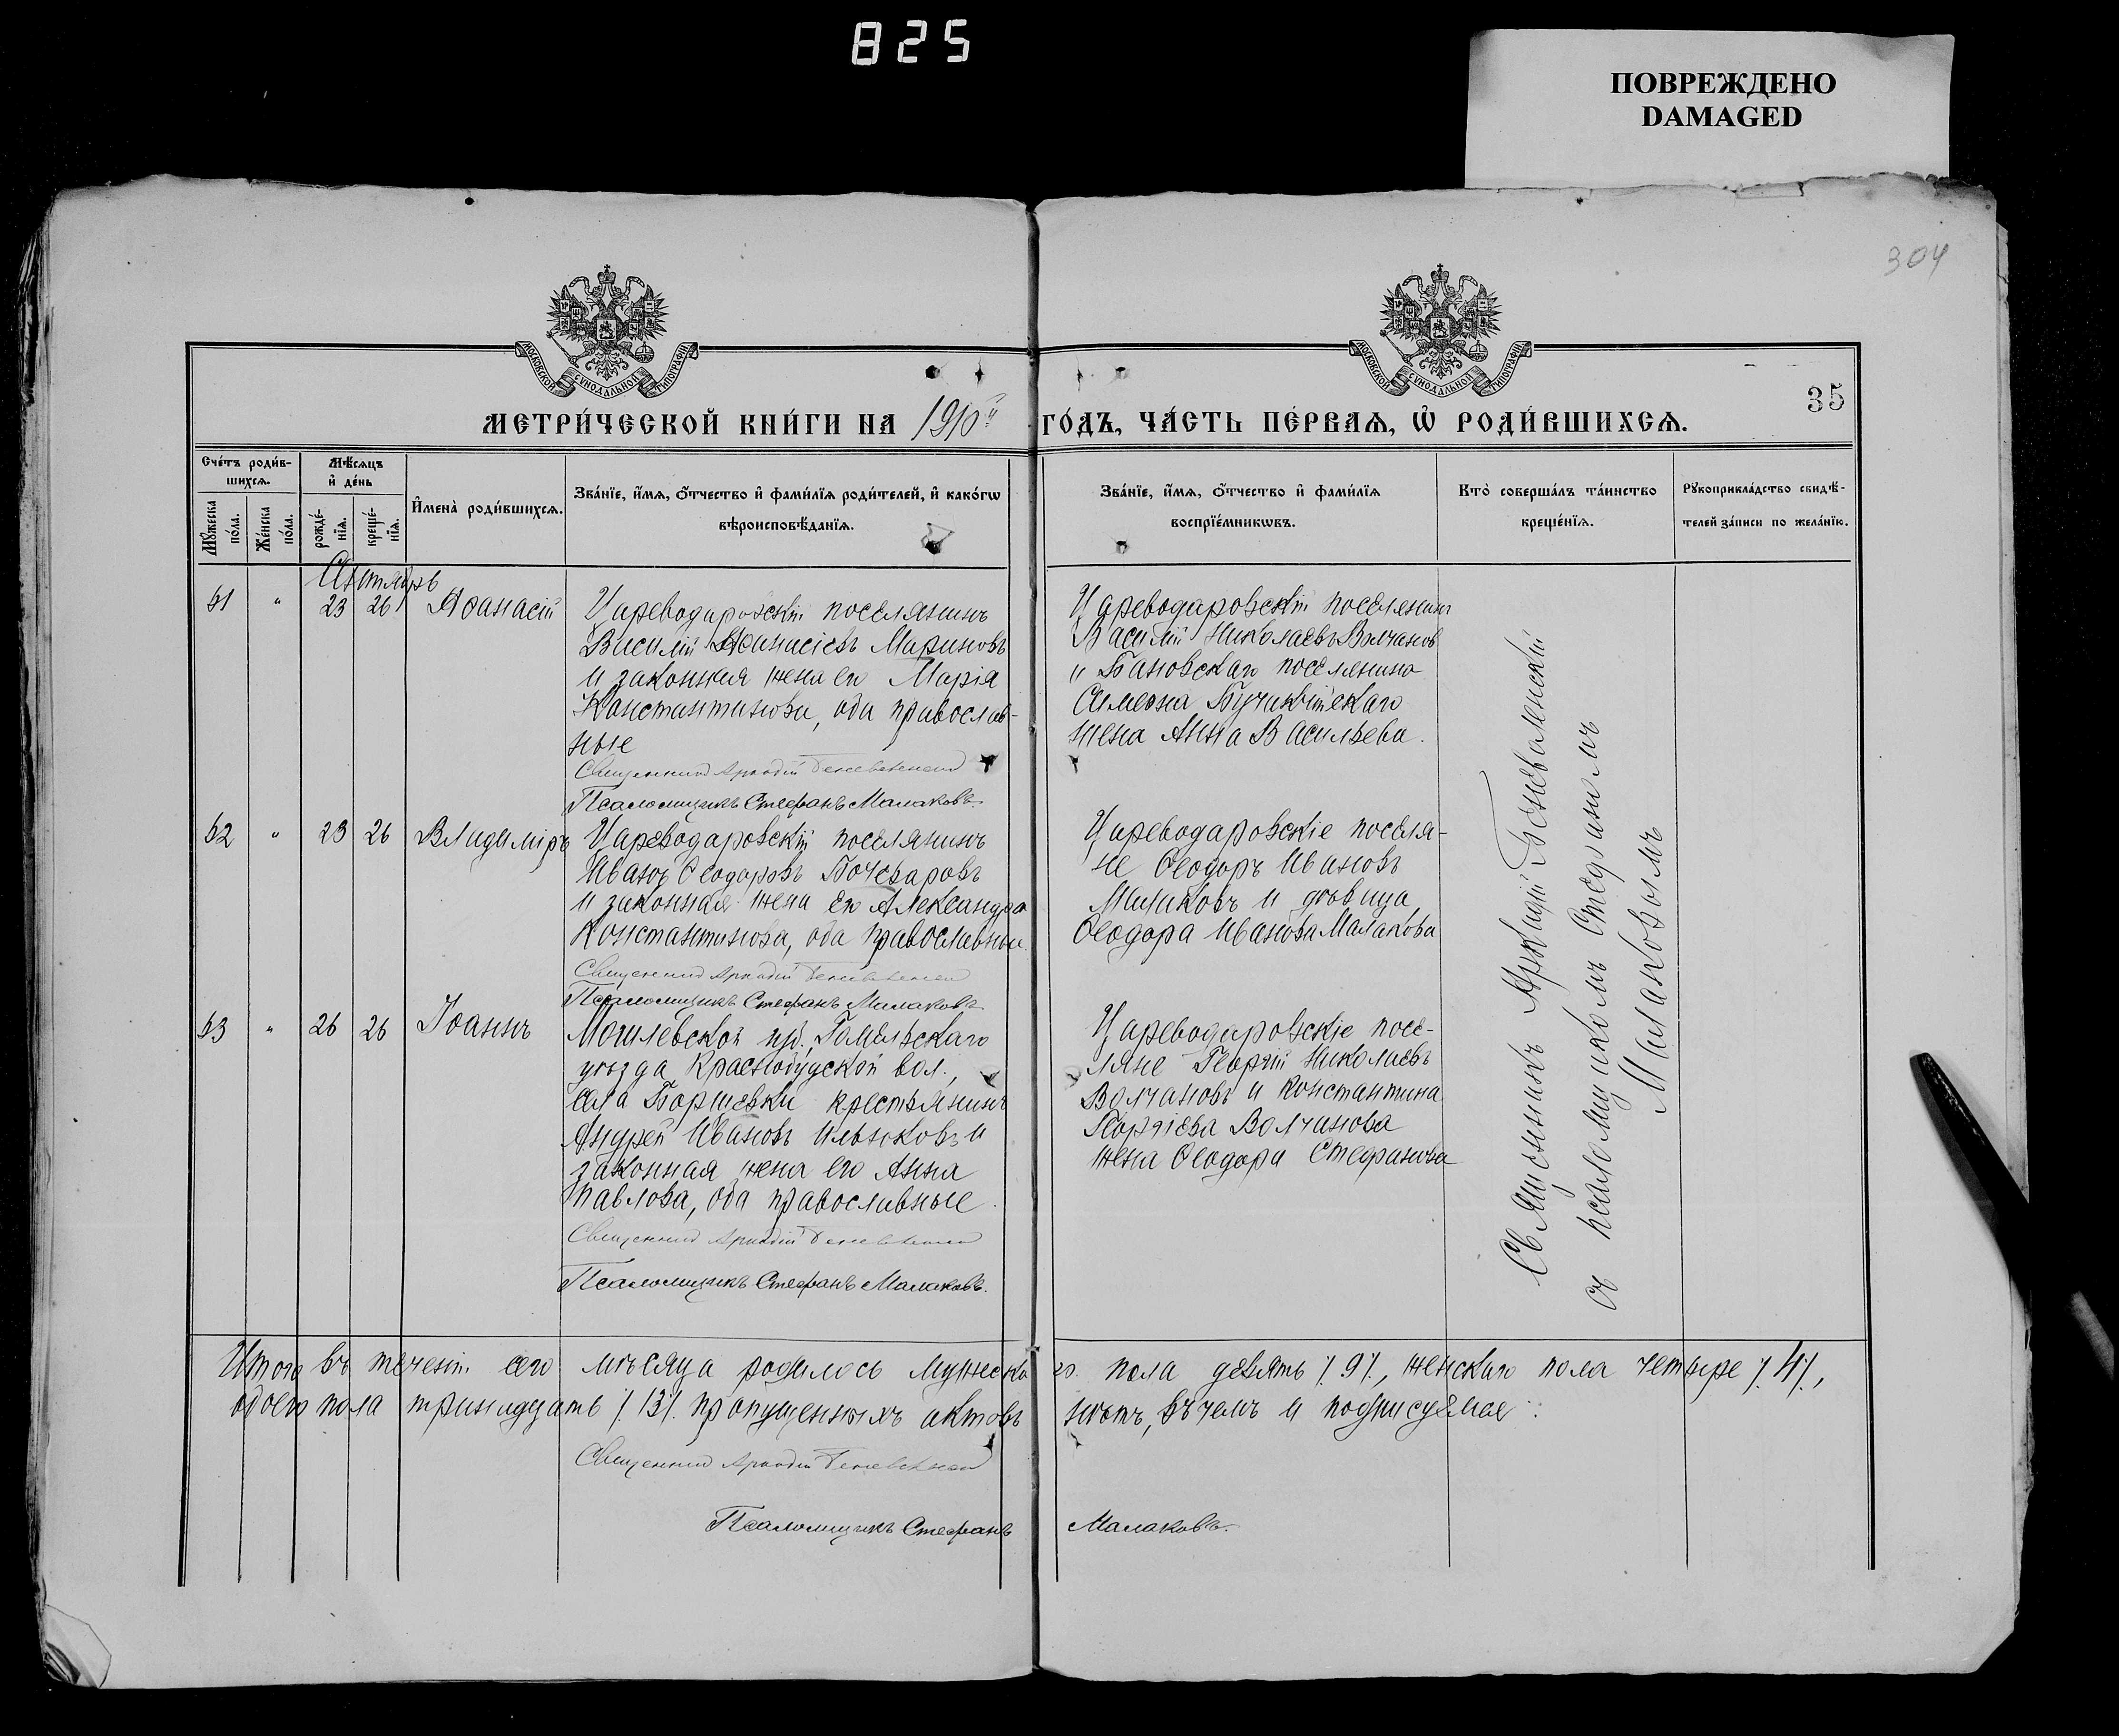 825
ПОВРЕЖДЕНО
DAMAGED
304
МОСКОВСКОЙ СѴНОДАЛЬНОЙ ТИПОГРАФІИ
МОСКОВСКОЙ СѴНОДАЛЬНОЙ ТИПОГРАФІИ
35
МЕТРИ́ЧЕСКОЙ КНИ́ГИ НА 1910й ГО́ДЪ, ЧА́СТЬ ПЕ́РВАѦ, Ѡ҆ РОДИ́ВШИХСѦ.
Сче́тъ роди́в-
шихсѧ.
Мѣ́сѧцъ
и҆ де́нь
Мꙋ́жеска
по́ла.
Же́нска
по́ла.
рожде́-
нїѧ.
креще́-
нїѧ.
И҆мена̀ роди́вшихсѧ.
Зва́нїе, и҆́мѧ, ѻ҆́тчество и҆ фами́лїѧ роди́телей, и҆ како́гѡ
вѣроисповѣ́данїѧ.
Зва́нїе, и҆́мѧ, ѻ҆́тчество и҆ фами́лїѧ
воспрїе́мникѡвъ.
Кто̀ соверша́лъ та́инство
креще́нїѧ.
Рꙋкоприкла́дство свидѣ́-
телей за́писи по жела́нїю.
61 " 23 26 Аѳанасій
Цареводаровскій поселянинъ
Василій Аѳанасіевъ Мариновъ
и законная жена его Марія
Константинова, оба православ-
ные
Священникъ Аркадій Беневоленскій
Псаломщикъ Стефанъ Малаковъ.
Цареводаровскій поселянинъ
Василій Николаевъ Волчановъ
и Бановскаго поселянина
Симеона
жена Анна Васильева.
62 " 23 26 Владиміръ
Цареводаровскій поселянинъ
Иванъ Ѳеодоровъ Бочеваровъ
и законная жена его Александра
Константинова, оба православные.
Священникъ Аркадій Беневоленскій
Псаломщикъ Стефанъ Малаковъ.
Цареводаровскіе поселя-
не Ѳеодоръ Ивановъ
Малаковъ и дѣвица
Ѳеодора Иванова Малакова
63 " 26 26 Іоаннъ
Могилевской губ. Гомельскаго
уѣзда, Краснобудской вол.,
села Борщевки крестьянинъ
Андрей Ивановъ Ильюковъ и
законная жена его Анна
Павлова, оба православные.
Священникъ Аркадій Беневоленскій
Псаломщикъ Стефанъ Малаковъ.
Цареводаровскіе посе-
ляне Георгій Николаевъ
Волчановъ и Константина
Георгіева Волчанова
жена Ѳеодора Стефанова
Священникъ Аркадій Беневоленскій
съ псаломщикомъ Стефаномъ
Малаковымъ
Итого въ теченіи сего мѣсяца родилось мужеского пола девять /. 9 /., женскаго пола четыре /. 4 /.,
обоего пола тринадцать /. 13 /. пропущенныхъ актовъ нѣтъ, въ чемъ и подписуемся:
Священникъ Аркадій Беневоленскій
Псаломщикъ Стефанъ Малаковъ.